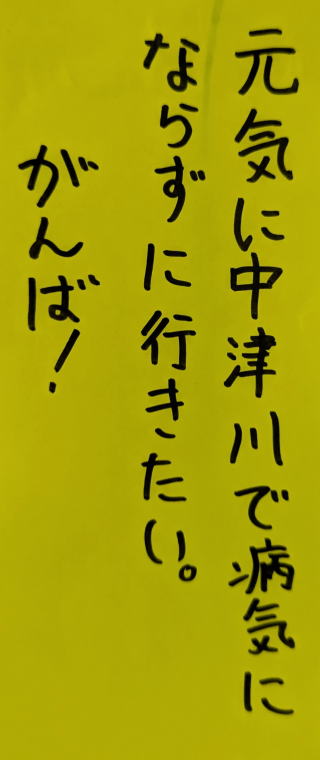 元気に中津川で病気に
ならずに行きたい。
がんば！